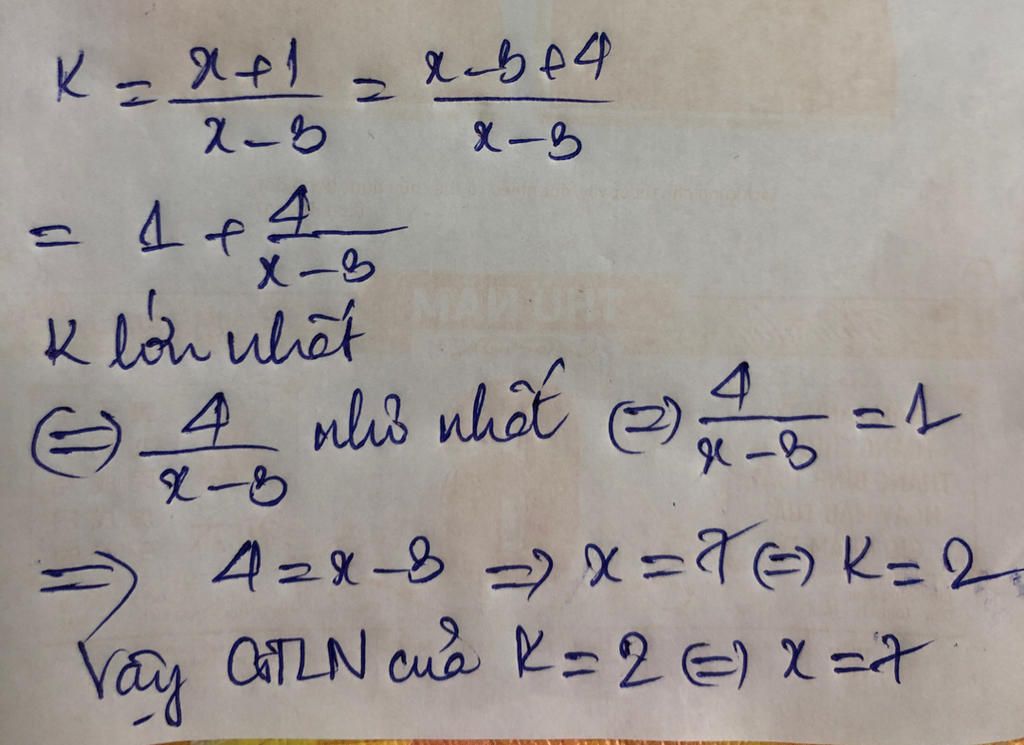 K = x+1 / x-3 = x-3+4 / x-3
= 1 + 4 / x-3
K lớn nhất
(=) 4 / x-3 nhỏ nhất (=) 4 / x-3 = 1
=> 4 = x-3 => x = 7 (=) K = 2
Vậy GTLN của K = 2 (=) x = 7
THU NAM